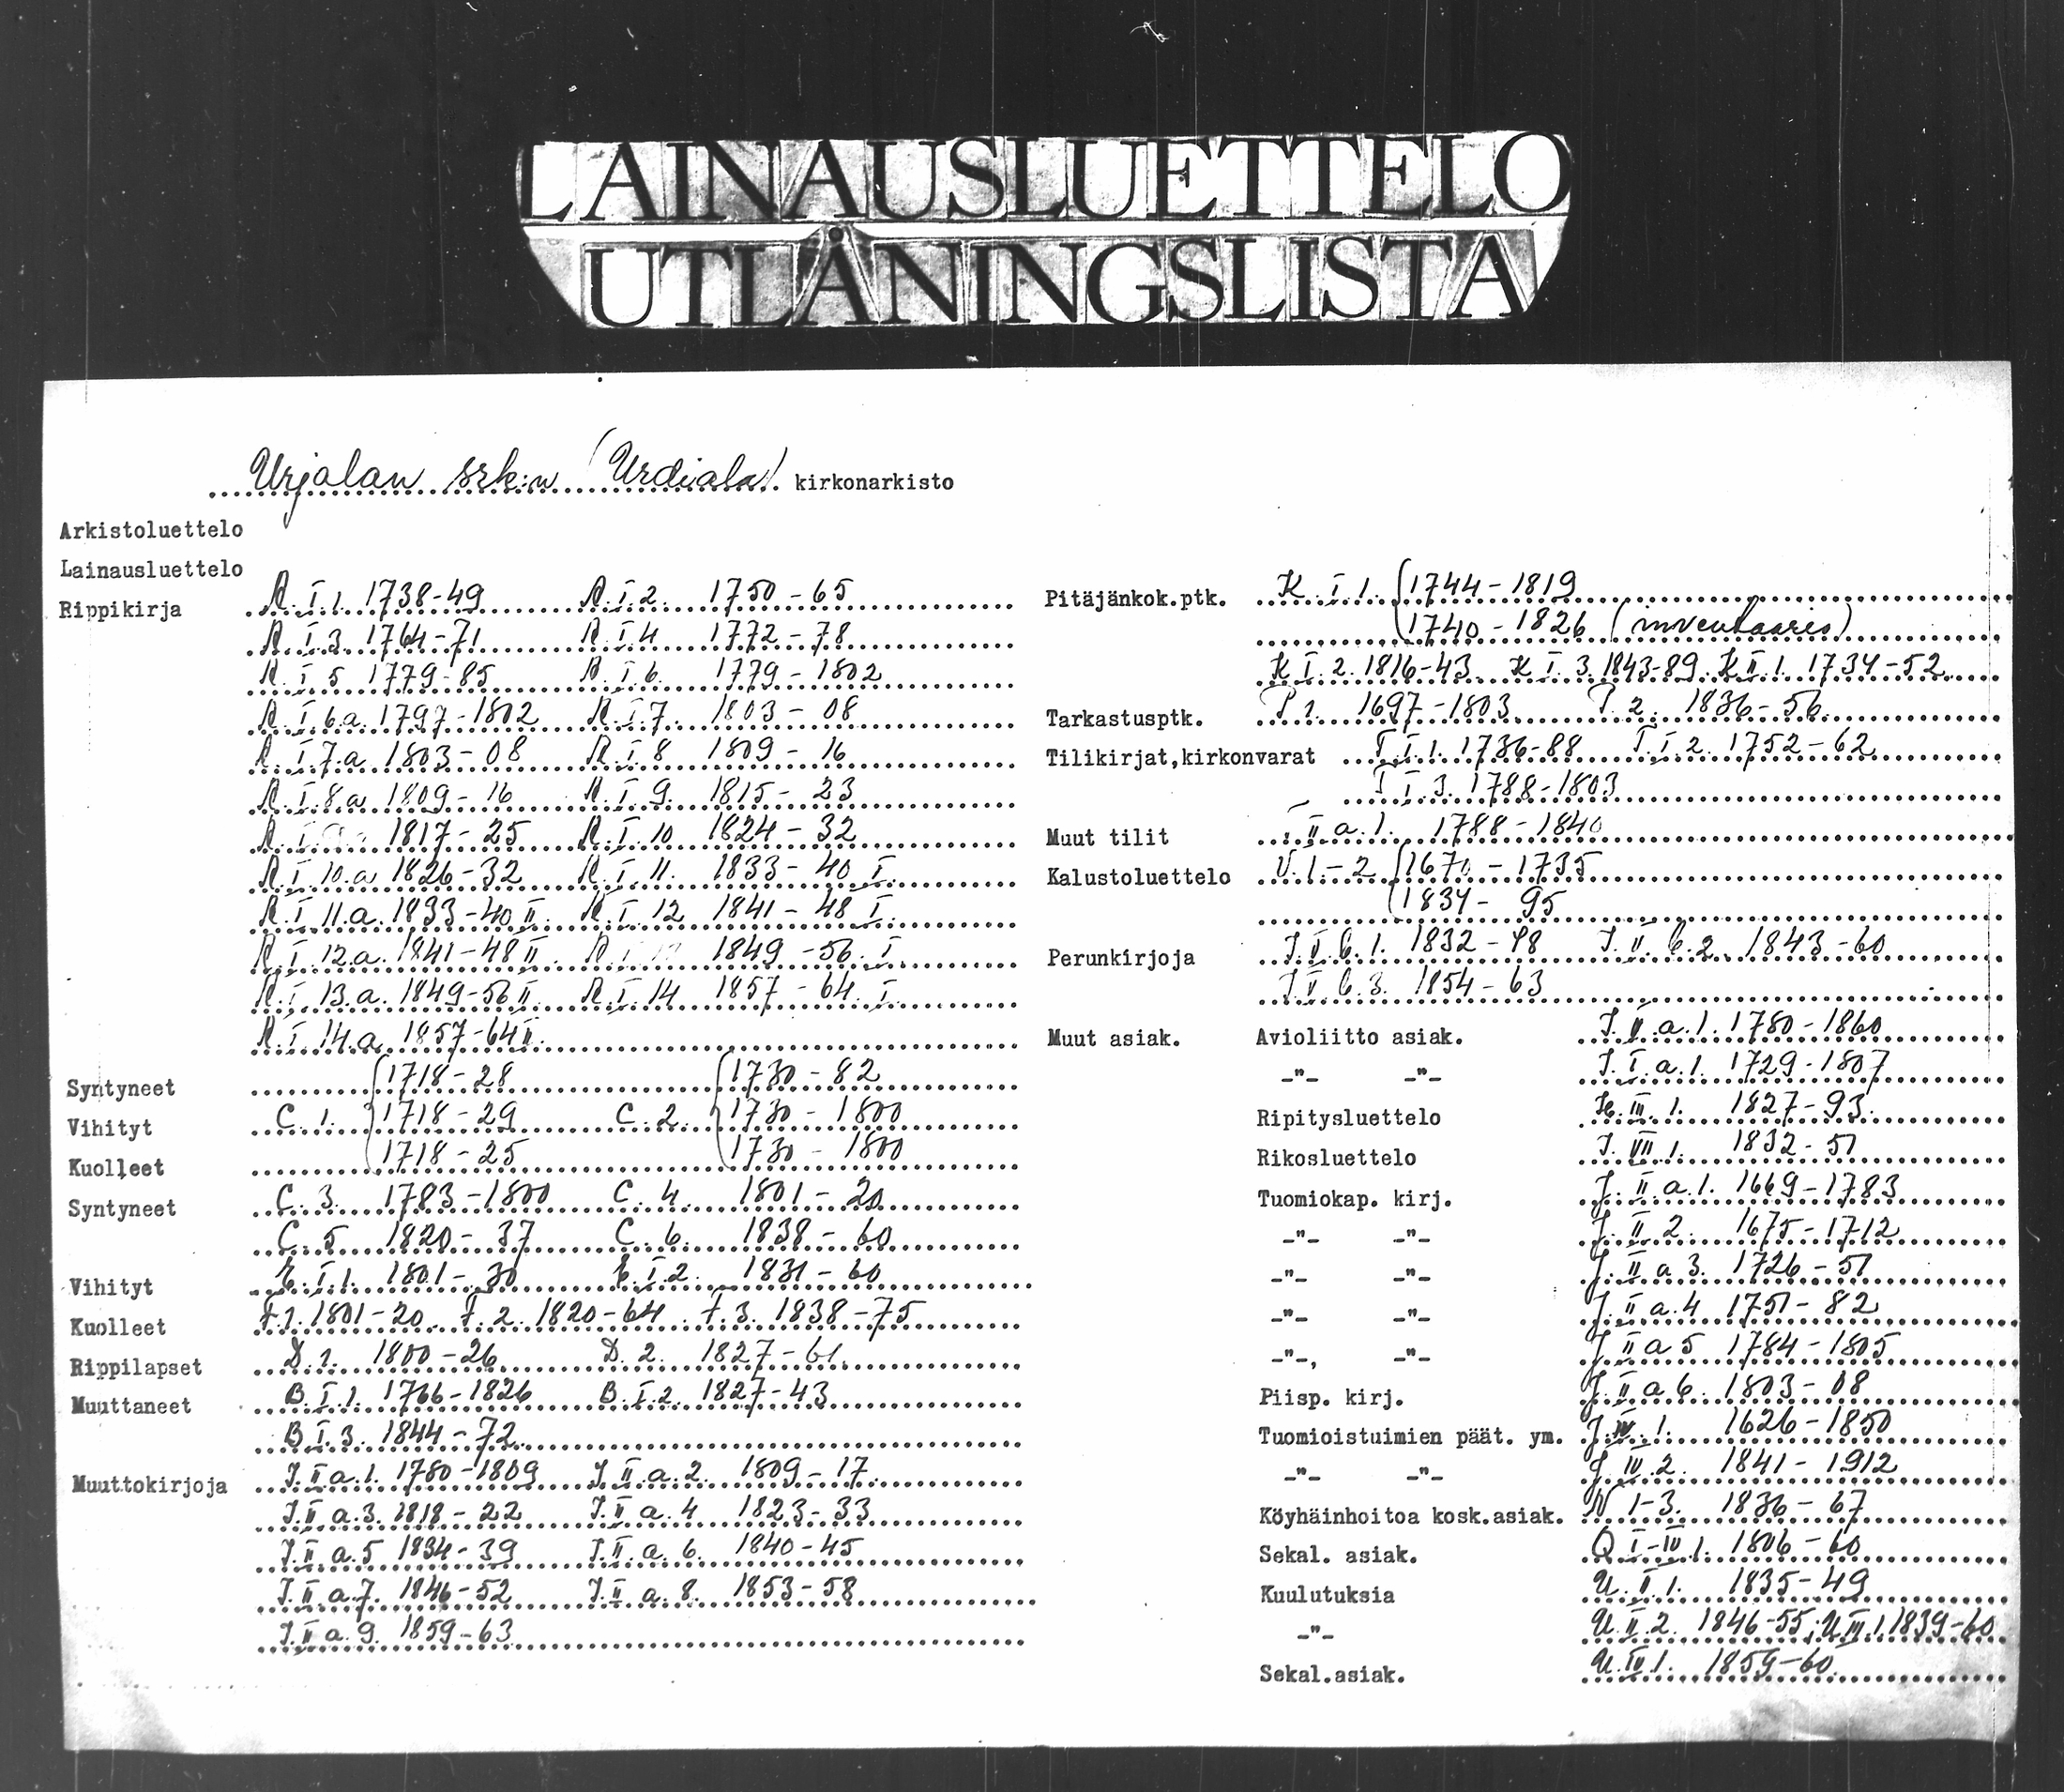 LAINAUSLUETTELO
UTLÅNINGSLISTA
Urjalan srk:n (Urdiala) kirkonarkisto
Arkistoluettelo
Lainausluettelo
Rippikirja R.I.1. 1738-49 R.I.2. 1750-65
R.I.3. 1764-71 R.I.4 1772-78
R.I.5 1779-85 R.I.6. 1779-1802
R.I.6.a. 1797-1802 R.I.7. 1803-08
R.I.7.a 1803-08 R.I.8 1809-16
R.I.8.a 1809-16 R.I.9. 1815-23
R.I. 1817-25 R.I.10 1824-32
R.I.10.a 1826-32 R.I.11. 1833-40 I.
R.I.11.a. 1833-40 II. R.I.12 1841-48 I.
R.I.12.a. 1841-48 II. 1849-56. I.
R.I.13.a. 1849-56 II. R.I.14 1857-64. I.
R.I.14.a 1857-64 II.
Syntyneet 1718-28 1730-82
Vihityt C.1. 1718-29 C.2. 1730-1800
Kuolleet 1718-25 1730-1800
Syntyneet C.3. 1783-1800 C.4. 1801-20
C.5 1820-37 C.6. 1838-60
Vihityt E.I.1. 1801-30 E.I.2. 1831-60
Kuolleet F.1. 1801-20 F.2. 1820-64 F.3. 1838-75
Rippilapset D.1. 1800-26 D.2. 1827-61.
Muuttaneet B.I.1. 1766-1826 B.I.2. 1827-43
B.I.3. 1844-72
Muuttokirjoja J.II.a.1. 1780-1809 J.II.a.2. 1809-17.
J.II.a.3. 1818-22 J.II.a.4 1823-33
J.II.a.5 1834-39 J.II.a.6. 1840-45
J.II.a.7. 1846-52 J.II.a.8. 1853-58
J.II.a.9. 1859-63
Pitäjänkok.ptk. K.I.1. 1744-1819
1740-1826 (inventaario)
K.I.2. 1816-43. K.I.3. 1843-89. K.II.1. 1734-52
Tarkastusptk. P.1. 1697-1803. P.2. 1836-56.
Tilikirjat,kirkonvarat T.I.1. 1736-88 T.I.2. 1752-62
T.I.3. 1788-1803
Muut tilit II.a.1. 1788-1840
Kalustoluettelo V.1-2 1670-1735
1834-95
Perunkirjoja J.V.b.1. 1832-48 J.V.b.2. 1843-60
J.V.b.3. 1854-63
Muut asiak. Avioliitto asiak. J.V.a.1. 1780-1860
-"- -"- J.I.a.1. 1729-1807
Ripitysluettelo III.1. 1827-93.
Rikosluettelo J.VII.1. 1832-51
Tuomiokap. kirj. J.II.a.1. 1669-1783
-"- -"- J.II.2. 1675-1712
-"- -"- J.II.a.3. 1726-51
-"- -"- J.II.a.4 1751-82
-"-, -"- J.II.a.5 1784-1805
Piisp. kirj. J.II.a.6. 1803-08
Tuomioistuimien päät. ym. J.IV.1. 1626-1850
-"- -"- J.IV.2. 1841-1912
Köyhäinhoitoa kosk.asiak. N 1-3. 1836-67
Sekal. asiak. Q I-IV 1. 1806-60
Kuulutuksia U.II.1. 1835-49
-"- U.II.2. 1846-55; U.III.1. 1839-60
Sekal.asiak. U.IV.1. 1859-60